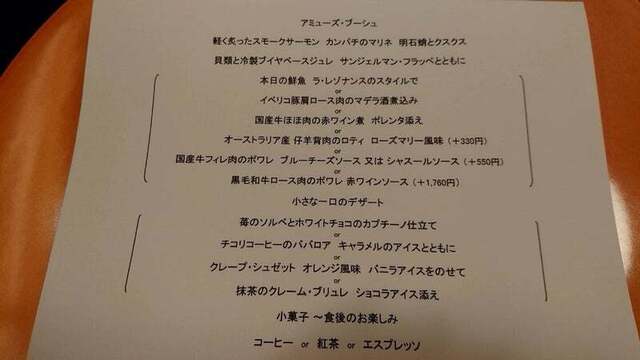 アミューズ・ブーシュ
軽く炙ったスモークサーモン カンパチのマリネ 明石蛸とクスクス
貝類と冷製ブイヤベースジュレ サンジェルマン・フラッペとともに
本日の鮮魚 ラ・レゾナンスのスタイルで
or
イベリコ豚肩ロース肉のマデラ酒煮込み
or
国産牛ほほ肉の赤ワイン煮 ポレンタ添え
or
オーストラリア産 仔羊背肉のロティ ローズマリー風味 (+330円)
or
国産牛フィレ肉のポワレ ブルーチーズソース 又は シャスールソース (+550円)
or
黒毛和牛ロース肉のポワレ 赤ワインソース (+1,760円)
小さな一口のデザート
苺のソルベとホワイトチョコのカプチーノ仕立て
or
チコリコーヒーのババロア キャラメルのアイスとともに
or
クレープ・シュゼット オレンジ風味 バニラアイスをのせて
or
抹茶のクレーム・ブリュレ ショコラアイス添え
小菓子 ～食後のお楽しみ
コーヒー or 紅茶 or エスプレッソ